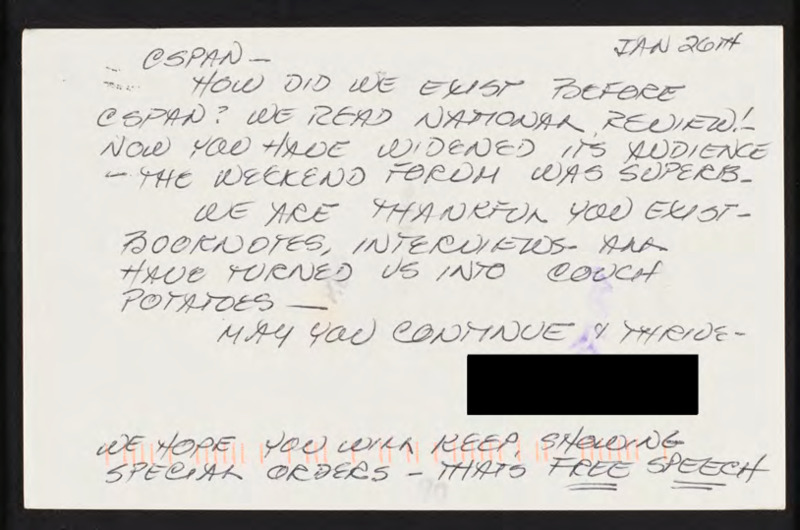 JAN 26TH
CSPAN —
HOW DID WE EXIST BEFORE
CSPAN? WE READ NATIONAL REVIEW! –
NOW YOU HAVE WIDENED ITS AUDIENCE
– THE WEEKEND FORUM WAS SUPERB –
WE ARE THANKFUL YOU EXIST –
BOOKNOTES, INTERVIEWS – ALL
HAVE TURNED US INTO COUCH
POTATOES —
MAY YOU CONTINUE & THRIVE –
WE HOPE YOU WILL KEEP SHOWING
SPECIAL ORDERS – THATS FREE SPEECH